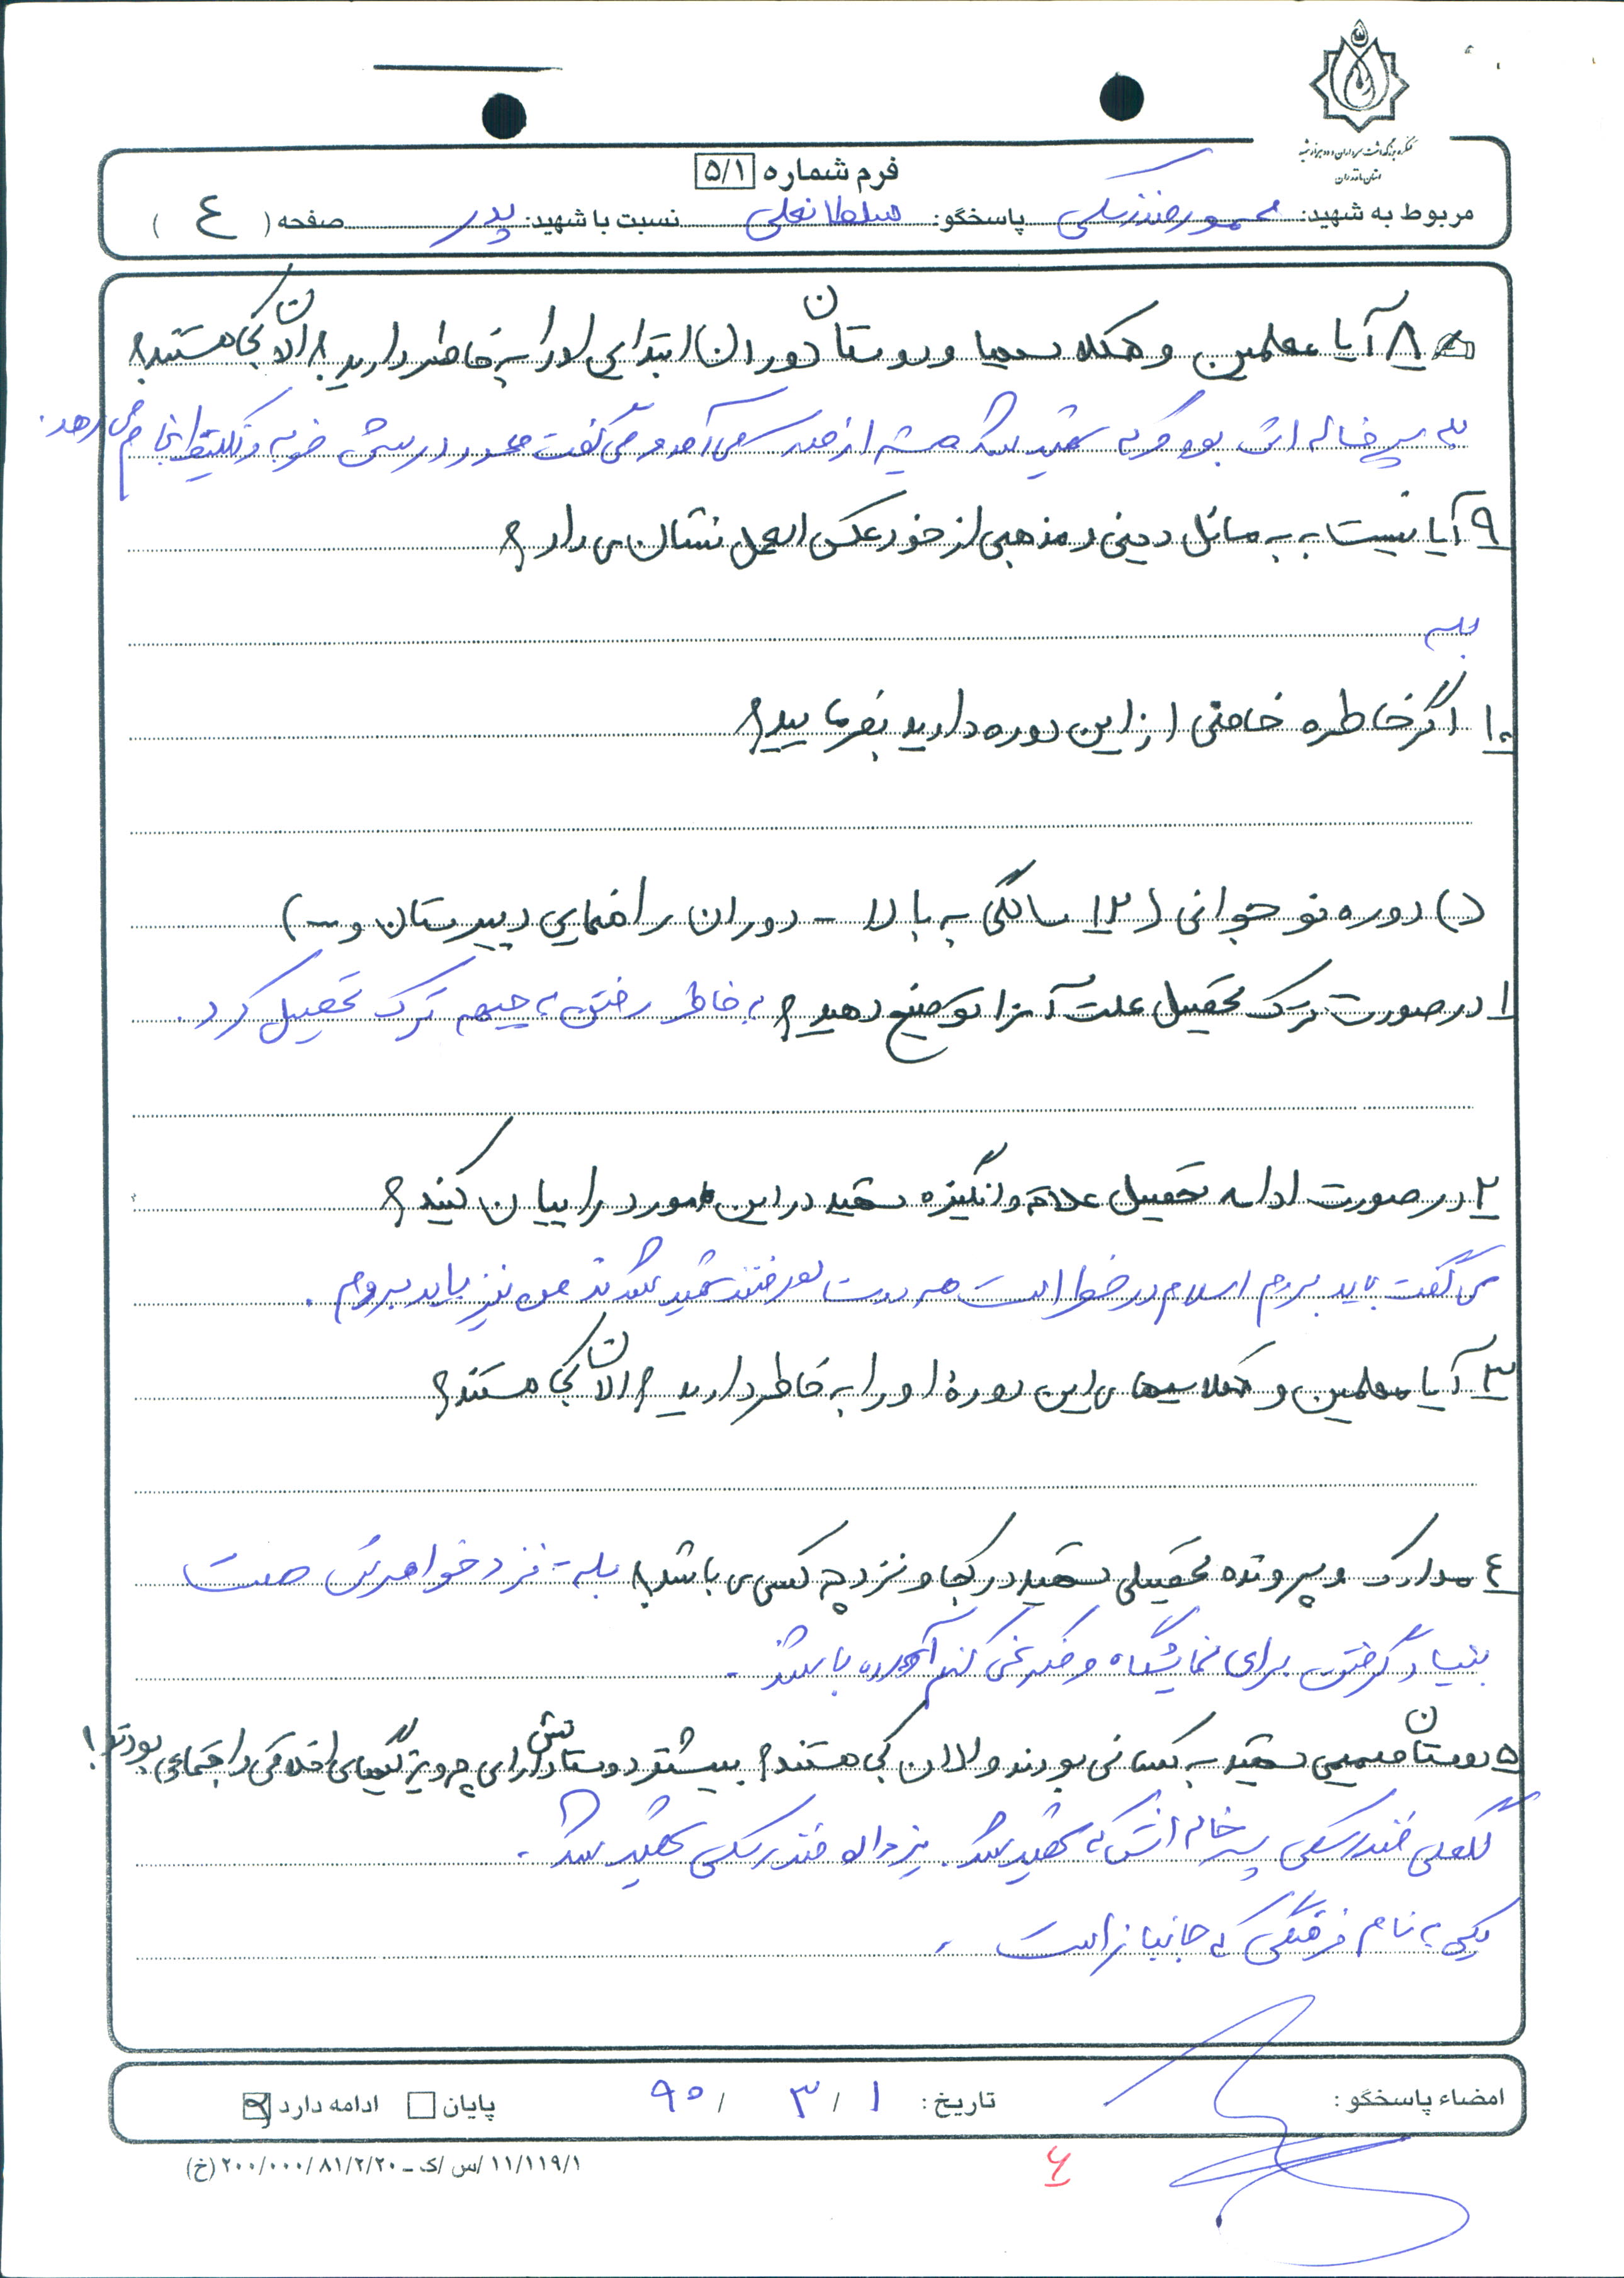 کنگره بزرگداشت سرداران و ده هزار شهید
استان مازندران
فرم شماره ۵/۱
مربوط به شهید: محمود فندرسکی پاسخگو: سلطانعلی نسبت با شهید: پدر صفحه ( ٤ )
۸ آیا معلمین و همکلاسیها و دوستان دوران ابتدایی او را به خاطر دارید؟ الان کجا هستند؟
بله پسر خاله اش بود که شهید شد همیشه از مدرسه می آمد و می گفت محمود درسش خوبه و تکلیفش را انجام می دهد.
۹ آیا نسبت به به مسائل دینی و مذهبی از خود عکس العمل نشان می داد؟
بله
۱۰ اگر خاطره خاصی از این دوره دارید بفرمایید؟
د) دوره نوجوانی (۱۲ سالگی به بالا - دوران راهنمایی دبیرستان و ...)
۱ در صورت ترک تحصیل علت آنرا توضیح دهید؟ به خاطر رفتن به جبهه ترک تحصیل کرد.
۲ در صورت ادامه تحصیل علاقه و انگیزه شهید در این مورد را بیان کنید؟
می گفت باید بروم اسلام در خطر است همه رفتند شهید شدند من نیز باید بروم.
۳ آیا معلمین و همکلاسیهای این دوره او را به خاطر دارید؟ الان کجا هستند؟
٤ مدارک و پرونده تحصیلی شهید در کجا و نزد چه کسی می باشد؟ بله - نزد خواهرش هست
بنیاد گرفتن برای نمایشگاه و فکر نمی کنم آورده باشند.
۵ دوستان صمیمی شهید چه کسانی بودند و الان کجا هستند؟ بیشتر دوستانش دارای چه ویژگیهای اخلاقی و اجتماعی بودند؟
گلعلی فندرسکی پسر خاله اش که شهید شد. فندرسکی شهید شد.
یکی به نام فرهنگی که جانباز است.
امضاء پاسخگو: تاریخ: ۱ / ۳ / ۹۵ پایان ادامه دارد
۱۱/۱۱۹/۱ /س /ک - ۲۰۰/۰۰۰/۸۱/۲/۲۰ (خ)
۶